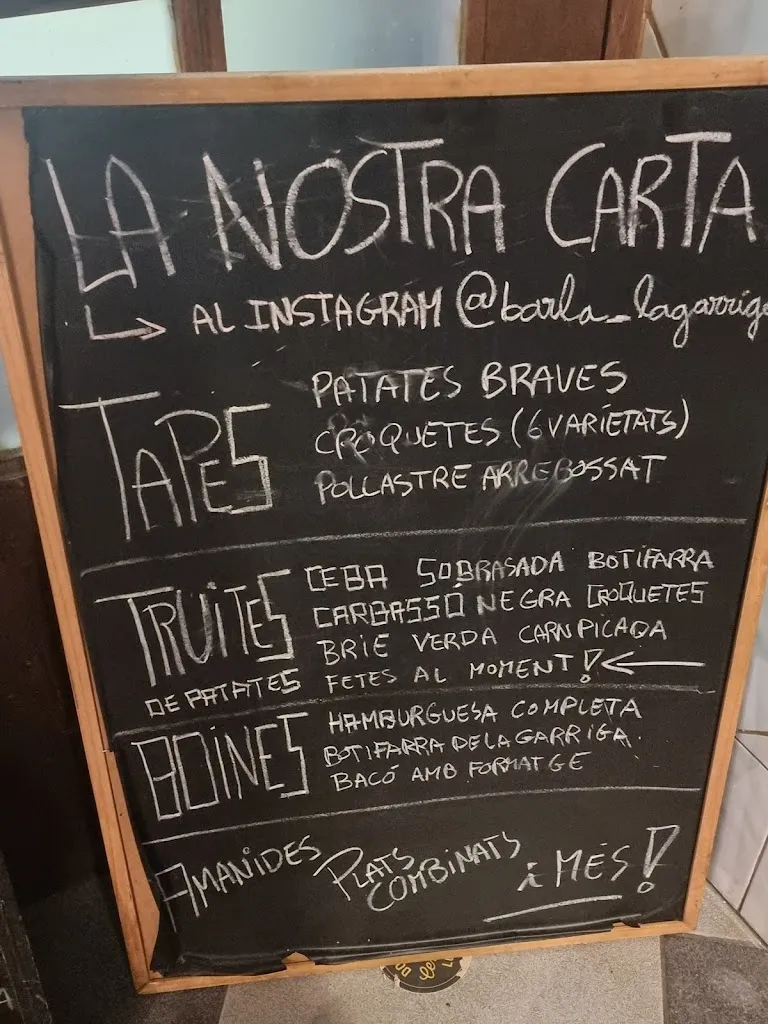 LA NOSTRA CARTA
AL INSTAGRAM @barla_lagarriga
TAPES
PATATES BRAVES
CROQUETES (6 VARIETATS)
POLLASTRE ARREBOSSAT
TRUITES
DE PATATES
CEBA SOBRASADA BOTIFARRA
CARBASSÓ NEGRA CROQUETES
BRIE VERDA CARN PICADA
FETES AL MOMENT!
BOINES
HAMBURGUESA COMPLETA
BOTIFARRA DE LA GARRIGA
BACÓ AMB FORMATGE
AMANIDES PLATS COMBINATS i MÉS!